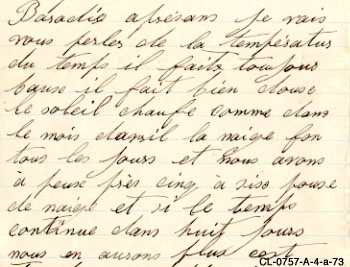 Baradis aprésans je vais
vous perler de la températur
du temps il faits toujour
bause il fait bien douse
le soleil chaufe comme dans
le mois davril la naige fon
tous les jours et nous avons
à peuse près cinq à siso pouse
de naige et si le temps
continue dans huit jours
nous en aurons plus
CL-0757-A-4-a-73